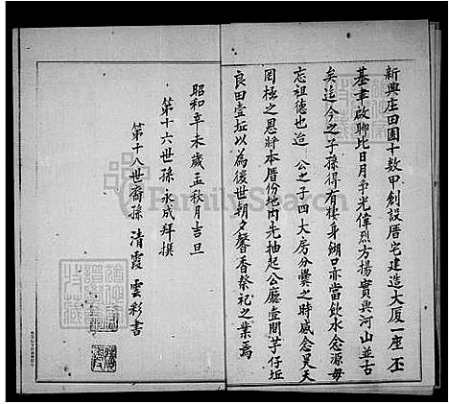 新興庄田園十數甲創設厝宅建造大厦一座丕
基聿啟聯比日月爭光偉烈方揚實與河山並古
矣迄今之子孫得有棲身餬口亦當飲水念源毋
忘祖德也迨 公之子四大房分爨之時感念昊天
罔極之恩將本厝份地內先抽起公廳壹間芋仔坵
良田壹坵以為後世朝夕馨香祭祀之業焉
昭和辛未歲孟秋月吉旦
第十六世孫永成拜撰
第十八世裔孫清霞雲彩書
FamilySearch